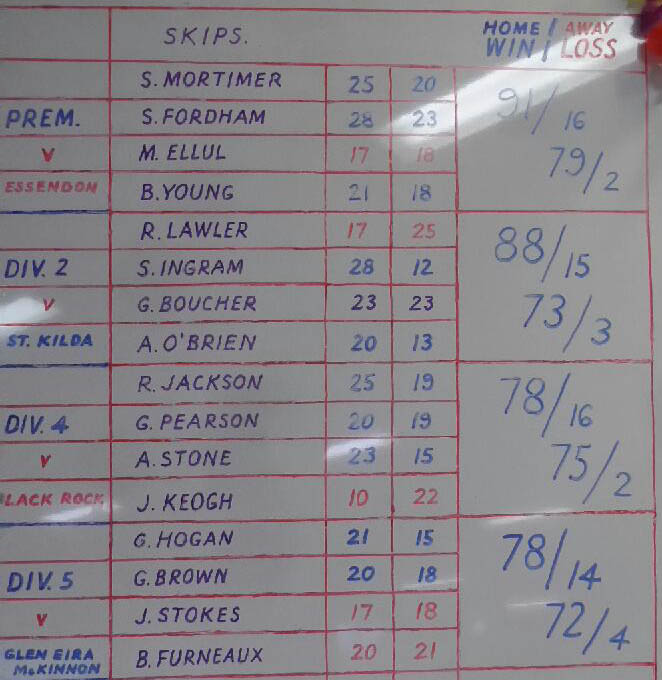 SKIPS. HOME / AWAY
WIN / LOSS
S. MORTIMER 25 20
PREM. S. FORDHAM 28 23 91/16
V M. ELLUL 17 18 79/2
ESSENDON B. YOUNG 21 18
R. LAWLER 17 25
DIV. 2 S. INGRAM 28 12 88/15
V G. BOUCHER 23 23 73/3
ST. KILDA A. O'BRIEN 20 13
R. JACKSON 25 19
DIV. 4 G. PEARSON 20 19 78/16
V A. STONE 23 15 75/2
LACK ROCK J. KEOGH 10 22
G. HOGAN 21 15
DIV. 5 G. BROWN 20 18 78/14
V J. STOKES 17 18 72/4
GLEN EIRA
McKINNON B. FURNEAUX 20 21